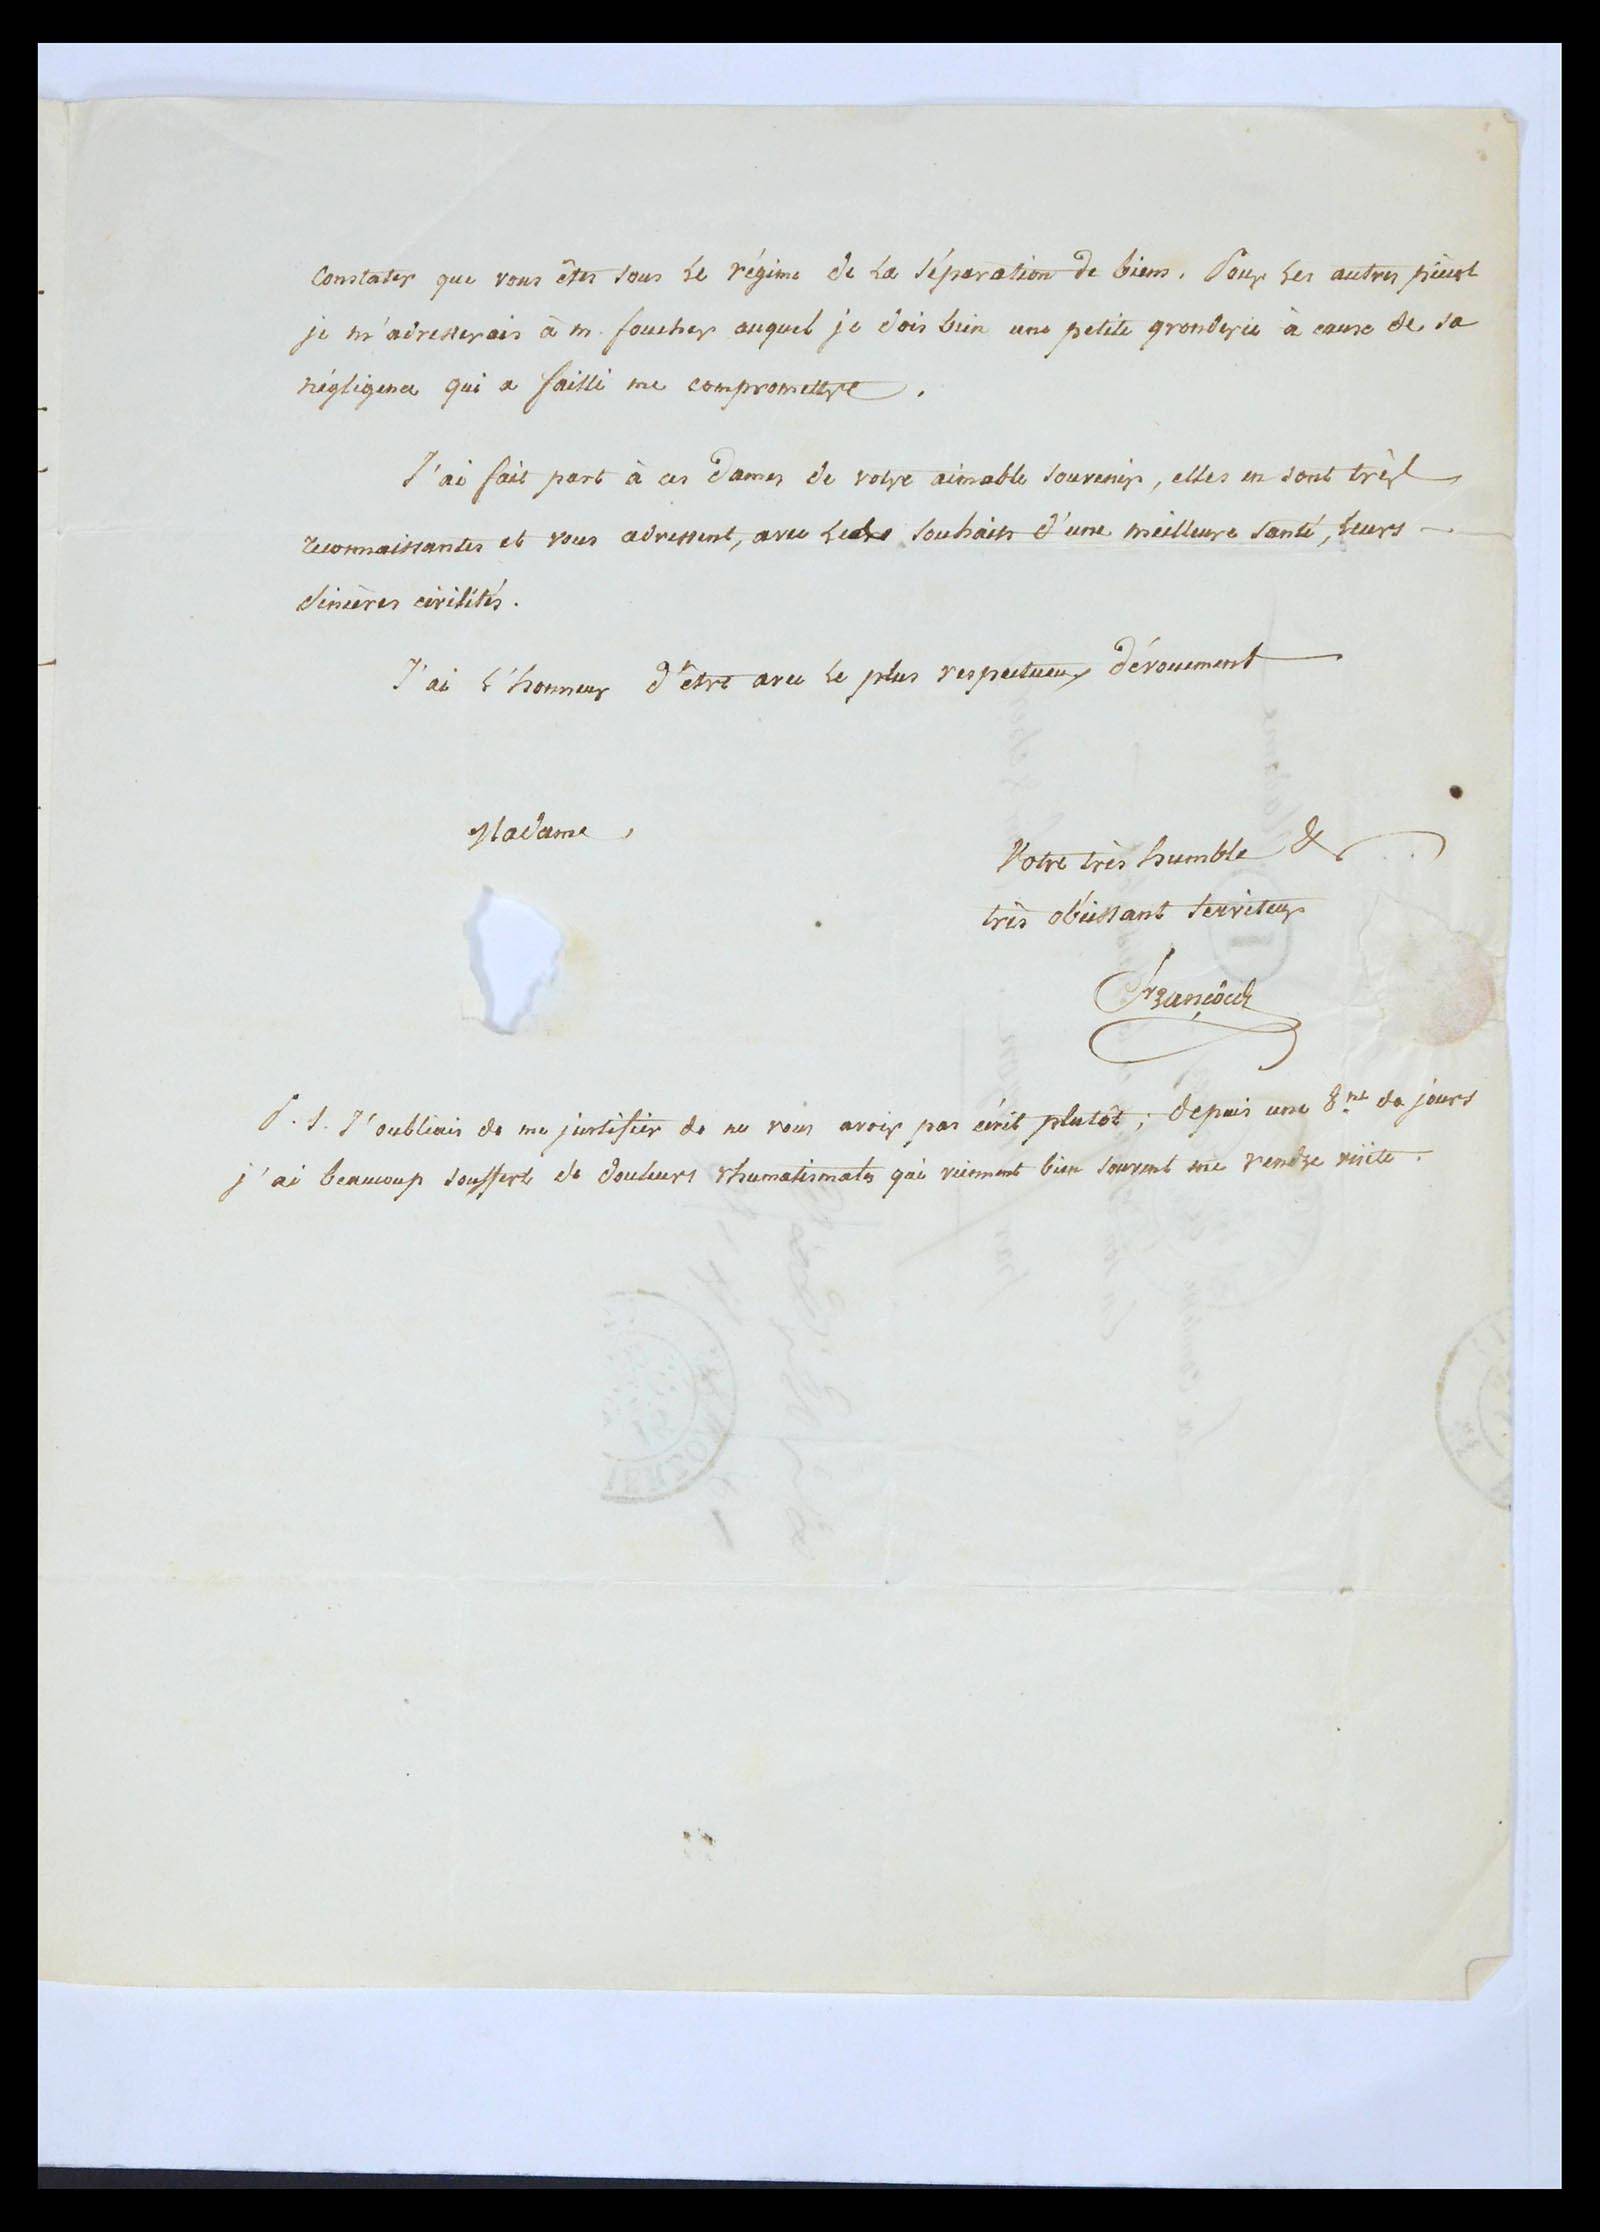 constater que vous êtes sous le régime de la séparation de biens. Pour les autres pièces
je m'adresserais à m. foucher auquel je dois bien une petite gronderie à cause de sa
négligence qui a failli me compromettre.
J'ai fait part à ces dames de votre aimable souvenir, elles en sont très
reconnaissantes et vous adressent, avec leurs souhaits d'une meilleure santé, leurs
sincères civilités.
J'ai l'honneur d'être avec le plus respectueux dévouement
Madame,
Votre très humble &
très obéissant serviteur
P. S. J'oubliais de me justifier de ne vous avoir pas écrit plutôt; depuis une 8.ne de jours
j'ai beaucoup souffert de douleurs rhumatismales qui viennent bien souvent me rendre visite.